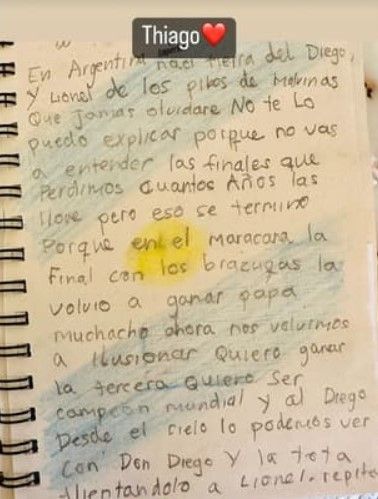 Thiago❤️
En Argentina naci tierra del Diego,
Y Lionel de los pibes de Malvinas
Que Jamas olvidare No te Lo
puedo explicar porque no vas
a entender las finales que
Perdimos Cuantos Años las
llore pero eso se termino
Porque en el Maracana la
Final con los brazugas la
volvio a ganar papa
muchacho ahora nos volvimos
a Ilusionar Quiero ganar
la tercera Quiero Ser
campeon mundial y al Diego
Desde el cielo lo podemos ver
Con Don Diego Y la tota
Alentandolo a Lionel. repite